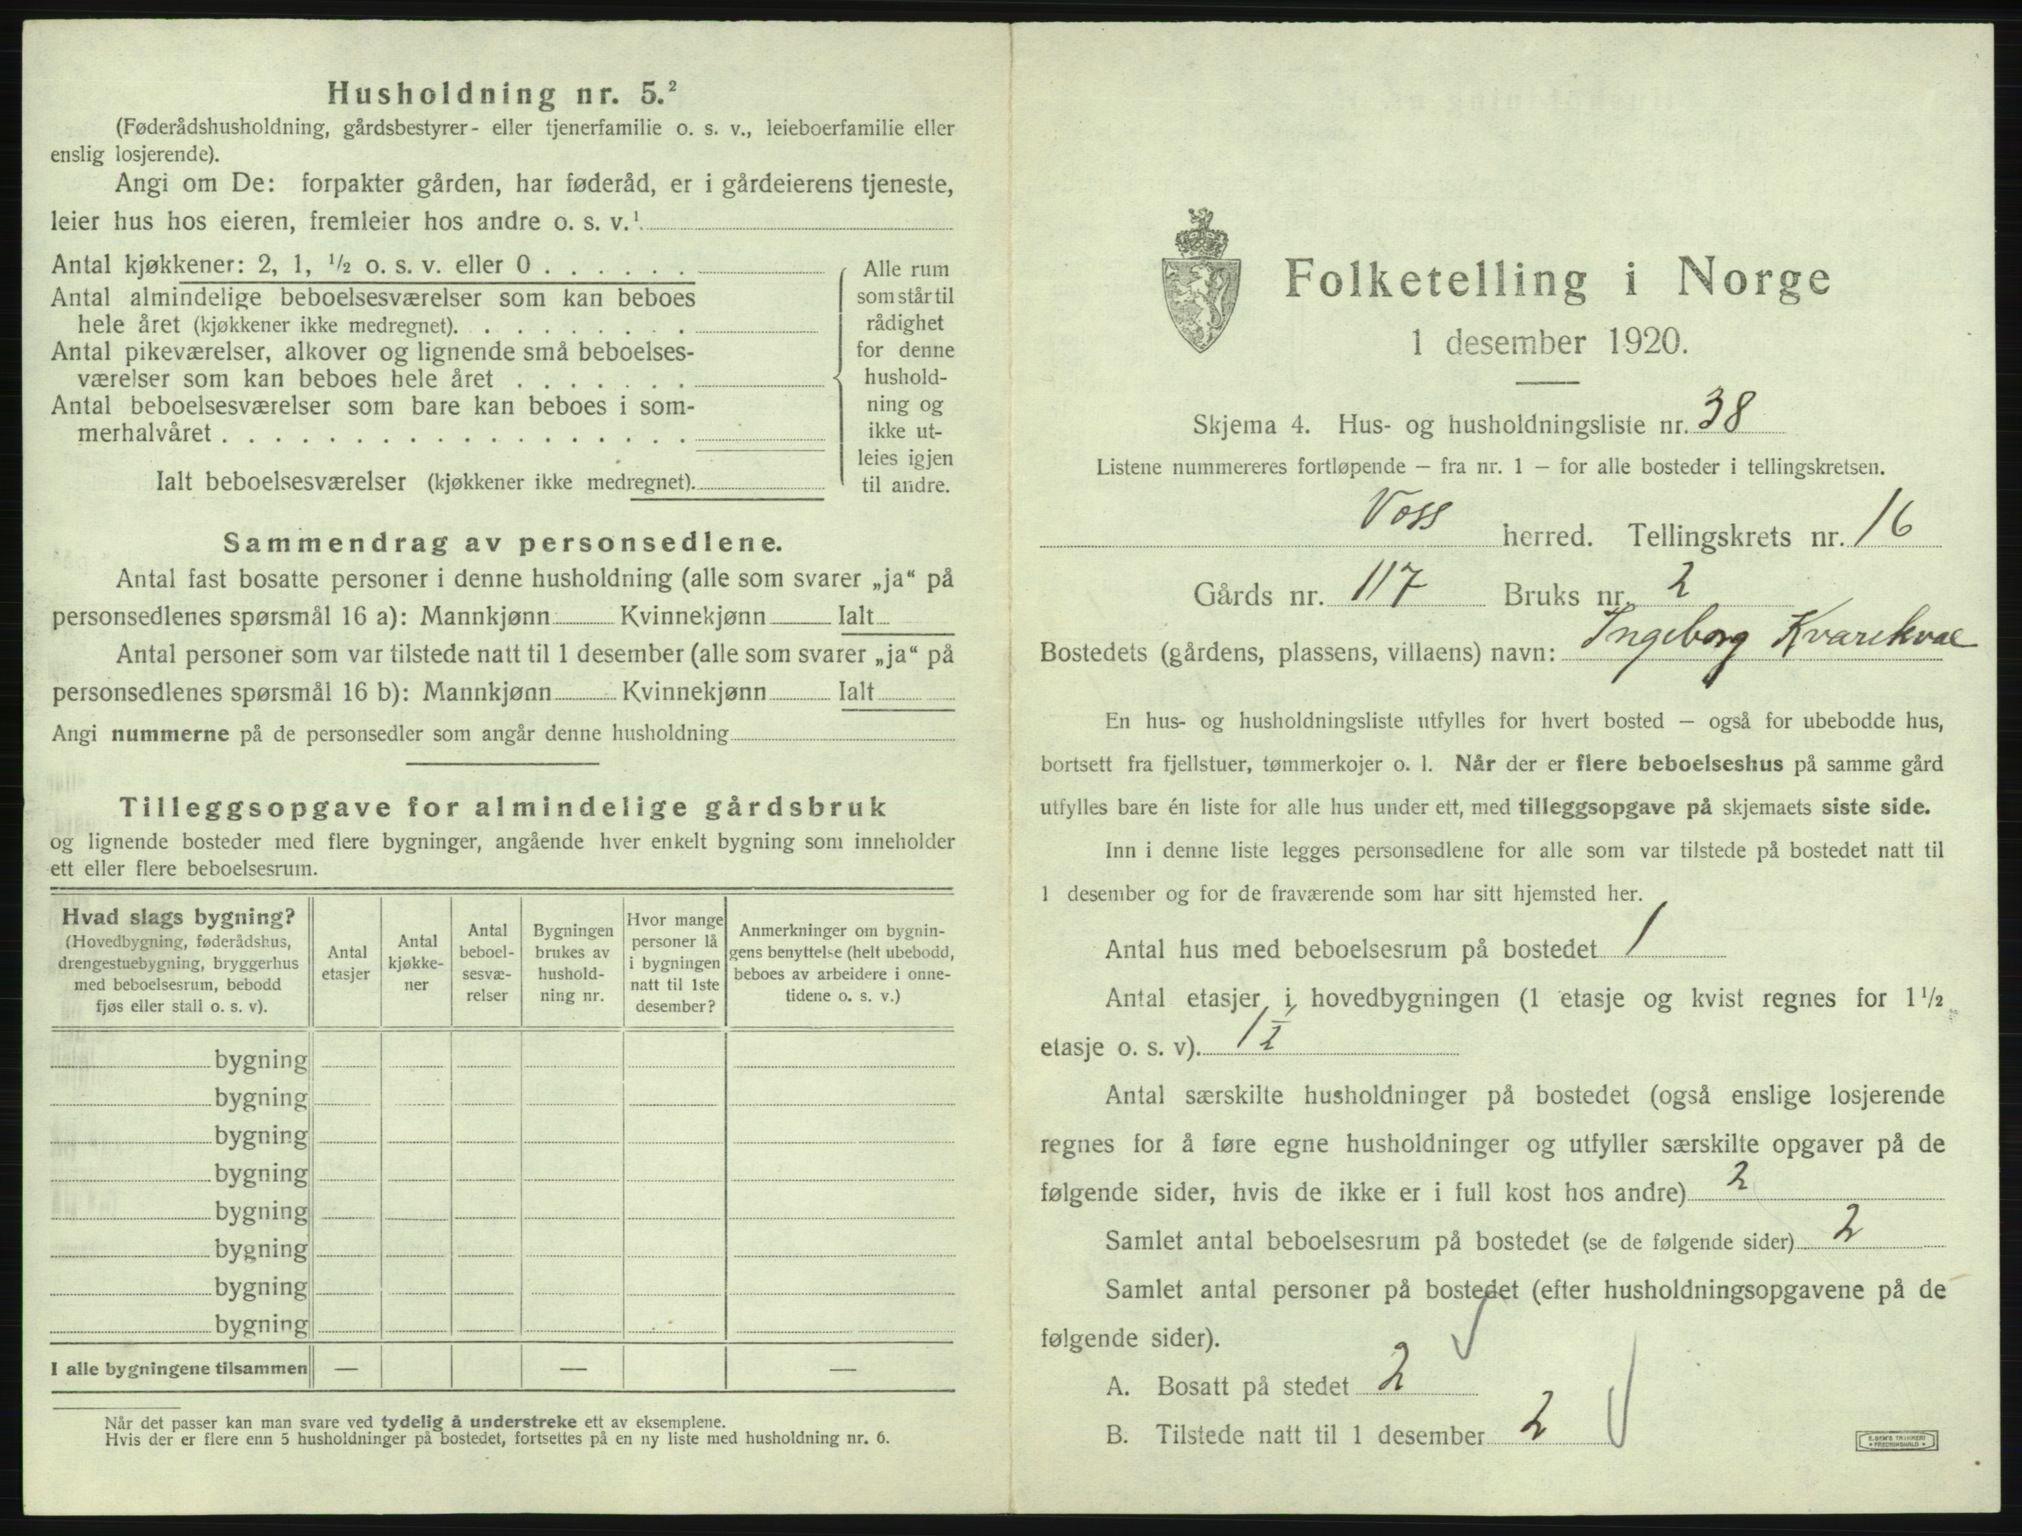 Husholdning nr. 5.²
(Føderådshusholdning, gårdsbestyrer- eller tjenerfamilie o. s. v., leieboerfamilie eller
enslig losjerende).
Angi om De: forpakter gården, har føderåd, er i gårdeierens tjeneste,
leier hus hos eieren, fremleier hos andre o. s. v.¹
Antal kjøkkener: 2, 1, ½ o. s. v. eller 0 . . . . . .
Antal almindelige beboelsesværelser som kan beboes
hele året (kjøkkener ikke medregnet). . . . . . . . .
Antal pikeværelser, alkover og lignende små beboelses-
værelser som kan beboes hele året . . . . . . .
Antal beboelsesværelser som bare kan beboes i som-
merhalvåret . . . . . . . . . . . . . . . . . .
Ialt beboelsesværelser (kjøkkener ikke medregnet).
Alle rum
som står til
rådighet
for denne
hushold-
ning og
ikke ut-
leies igjen
til andre.
Sammendrag av personsedlene.
Antal fast bosatte personer i denne husholdning (alle som svarer „ja“ på
personsedlenes spørsmål 16 a): Mannkjønn Kvinnekjønn Ialt
Antal personer som var tilstede natt til 1 desember (alle som svarer „ja“ på
personsedlenes spørsmål 16 b): Mannkjønn Kvinnekjønn Ialt
Angi nummerne på de personsedler som angår denne husholdning
Tilleggsopgave for almindelige gårdsbruk
og lignende bosteder med flere bygninger, angående hver enkelt bygning som inneholder
ett eller flere beboelsesrum.
Hvad slags bygning?
(Hovedbygning, føderådshus,
drengestuebygning, bryggerhus
med beboelsesrum, bebodd
fjøs eller stall o. s. v).
Antal
etasjer
Antal
kjøkke-
ner
Antal
beboel-
sesvæ-
relser
Bygningen
brukes av
hushold-
ning nr.
Hvor mange
personer lå
i bygningen
natt til 1ste
desember?
Anmerkninger om bygnin-
gens benyttelse (helt ubebodd,
beboes av arbeidere i onne-
tidene o. s. v.)
bygning
bygning
bygning
bygning
bygning
bygning
bygning
bygning
I alle bygningene tilsammen — — —
Når det passer kan man svare ved tydelig å understreke ett av eksemplene.
Hvis der er flere enn 5 husholdninger på bostedet, fortsettes på en ny liste med husholdning nr. 6.
Folketelling i Norge
1 desember 1920.
Skjema 4. Hus- og husholdningsliste nr. 38
Listene nummereres fortløpende – fra nr. 1 – for alle bosteder i tellingskretsen.
Voss herred. Tellingskrets nr. 16
Gårds nr. 117 Bruks nr. 2
Bostedets (gårdens, plassens, villaens) navn: Ingeborg Kvarekval
En hus- og husholdningsliste utfylles for hvert bosted – også for ubebodde hus,
bortsett fra fjellstuer, tømmerkojer o. l. Når der er flere beboelseshus på samme gård
utfylles bare én liste for alle hus under ett, med tilleggsopgave på skjemaets siste side.
Inn i denne liste legges personsedlene for alle som var tilstede på bostedet natt til
1 desember og for de fraværende som har sitt hjemsted her.
Antal hus med beboelsesrum på bostedet 1
Antal etasjer i hovedbygningen (1 etasje og kvist regnes for 1½
etasje o. s. v). 1½
Antal særskilte husholdninger på bostedet (også enslige losjerende
regnes for å føre egne husholdninger og utfyller særskilte opgaver på de
følgende sider, hvis de ikke er i full kost hos andre) 2
Samlet antal beboelsesrum på bostedet (se de følgende sider) 2
Samlet antal personer på bostedet (efter husholdningsopgavene på de
følgende sider).
A. Bosatt på stedet 2
B. Tilstede natt til 1 desember 2